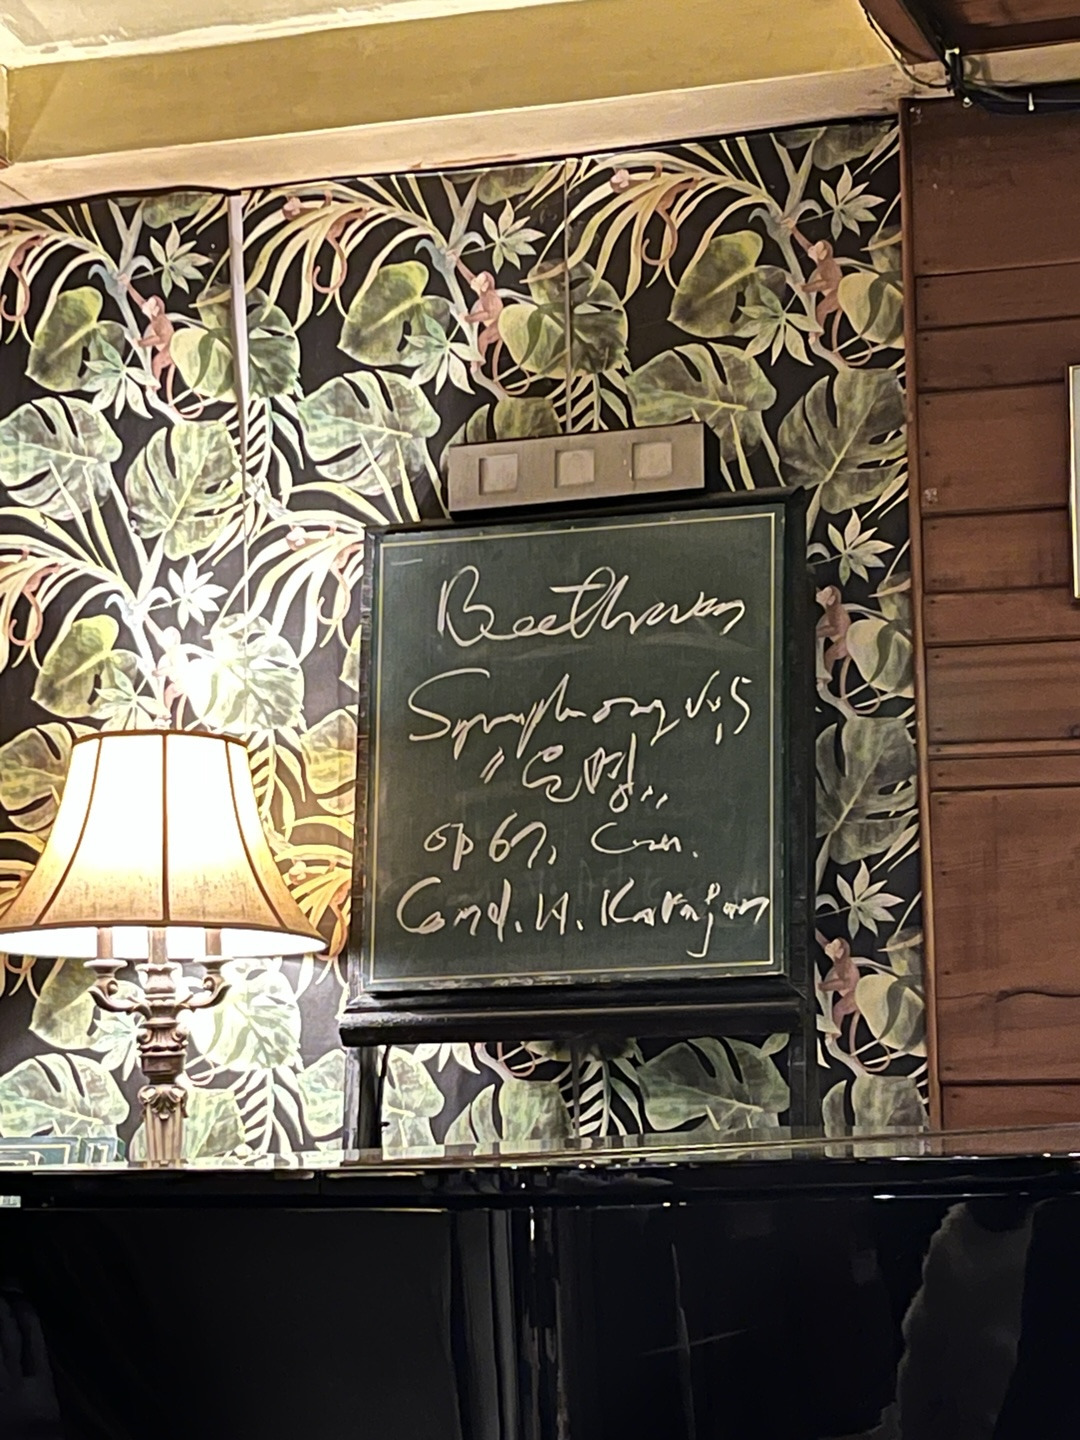 Beethoven
Symphony No,5
"운명"
op 67, Cm.
Cond. H. Karajan